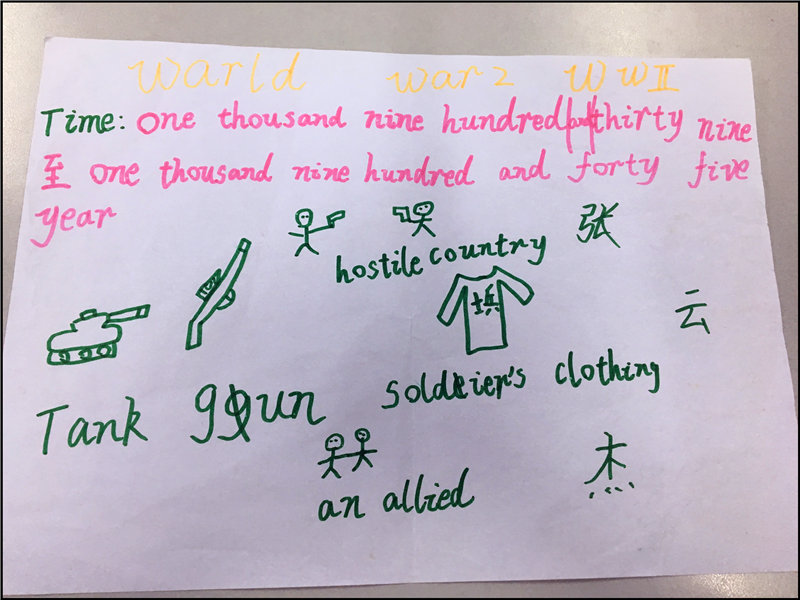 warld war 2 WWII
Time: one thousand nine hundred thirty nine
至 one thousand nine hundred and forty five
year
张
hostile country
士兵
云
soldier's clothing
Tank gun
杰
an allied